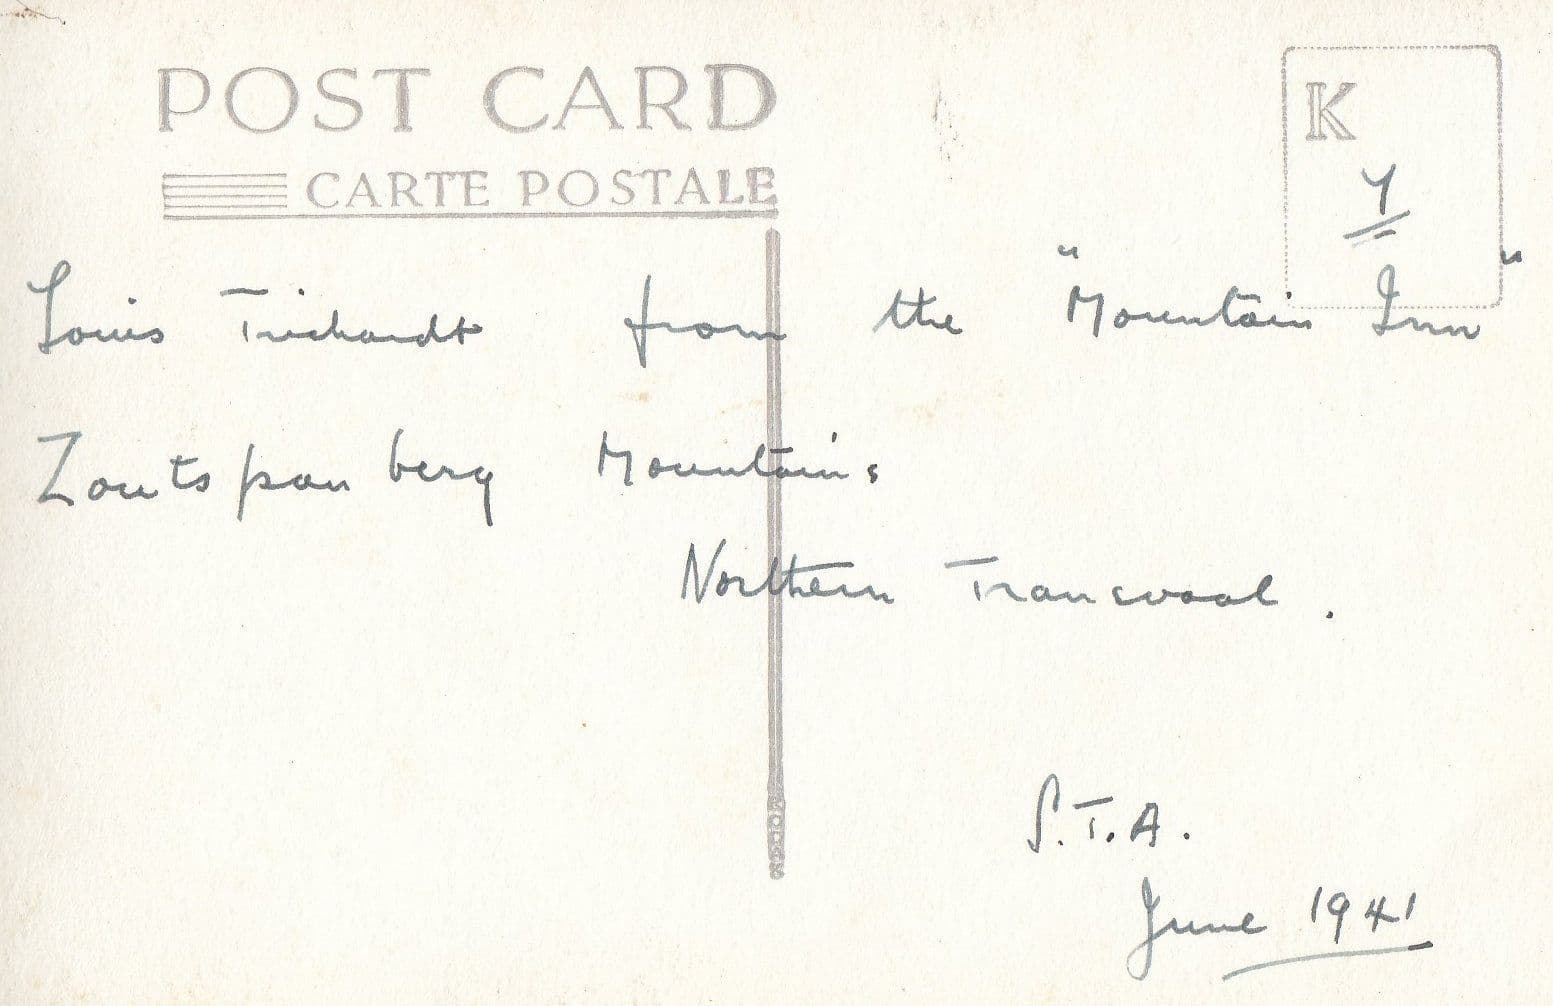 POST CARD
CARTE POSTALE
K
Y
Louis Trichardt from the "Mountain Inn"
Zoutspanberg Mountains
Northern Transvaal.
S.T.A.
June 1941